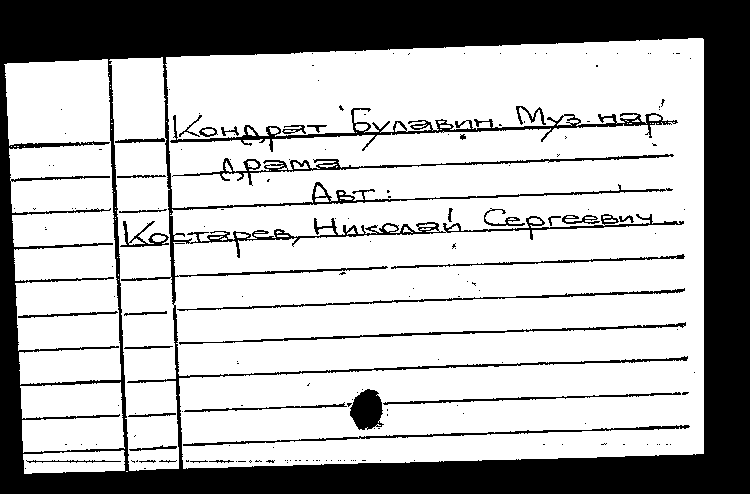 Кондрат Булавин. Муз. нар.
драма.
Авт.:
Костарев, Николай Сергеевич.